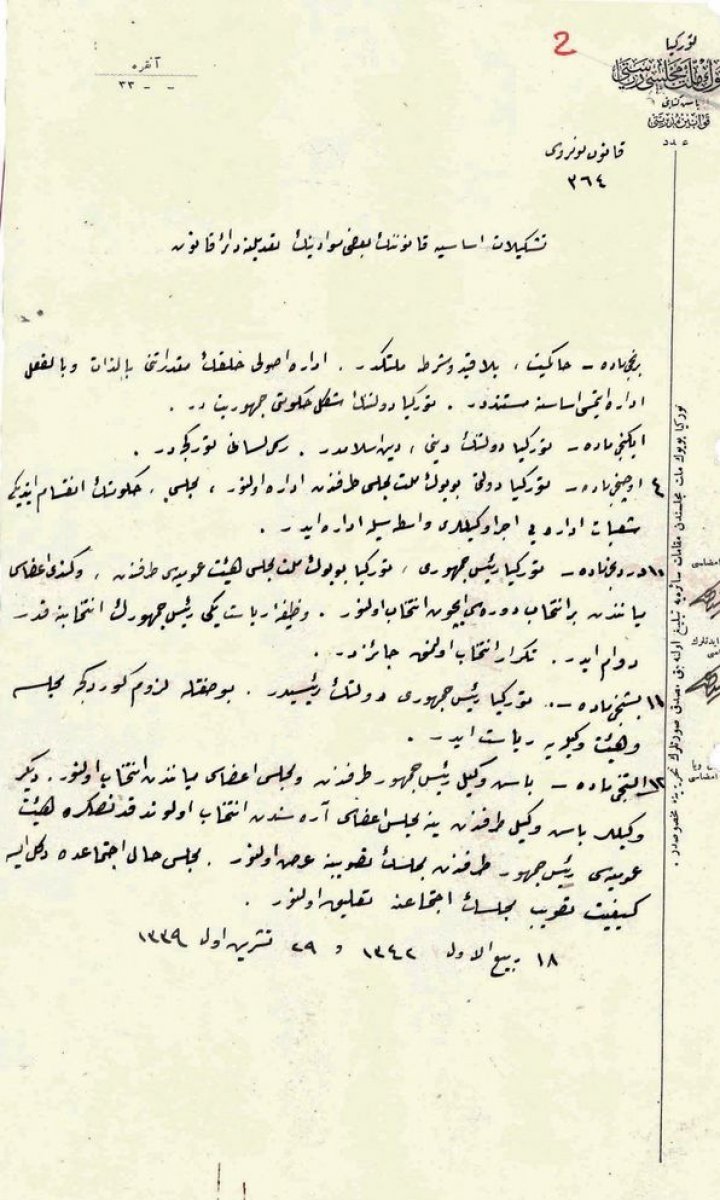 توركيا
بيوك ملت مجلسى رياستى
باش كتابتى
قوانين مديريتى
عدد
2
آنقره
- - ٣٣
قانون نومروسى
٣٦٤
تشكيلات اساسيه قانوننك بعضى موادينك تعديلنه دائر قانون
برنجى ماده – حاكميت ، بلا قيد و شرط ملتكدر . اداره اصولى خلقك مقدراتنى بالذات و بالفعل
اداره ايتمسى اساسنه مستنددر . توركيا دولتنك شكل حكومتى جمهوريت در .
ايكنجى ماده – توركيا دولتنك دينى ، دين اسلامدر . رسمى لسانى توركجه در .
٤ اوچنجى ماده – توركيا دولتى بويوك ملت مجلسى طرفندن اداره اولنور ، مجلس ، حكومتك انقسام ايتديكى
شعبات اداره يى اجرا وكيللرى واسطه سيله اداره ايدر .
١٠ دردنجى ماده – توركيا رئيس جمهورى ، توركيا بويوك ملت مجلسى هيئت عموميه سى طرفندن ، و كندى اعضاسى
مياننده‌ن بر انتخاب دوره سى ايچون انتخاب اولنور . وظيفه رياست يكى رئيس جمهورك انتخابنه قدر
دوام ايدر . تكرار انتخاب اولنمق جائزدر .
١١ بشنجى ماده – توركيا رئيس جمهورى دولتك رئيسيدر . بو صفتله لزوم كوردكجه مجلسه
و هيئت وكيله يه رياست ايدر .
١٢ آلتنجى ماده – باش وكيل رئيس جمهور طرفندن و مجلس اعضاسى مياننده‌ن انتخاب اولنور . ديكر
وكيللر باش وكيل طرفندن ينه مجلس اعضاسى آره سندن انتخاب اولوندقدنصكره هيئت
عموميه سى رئيس جمهور طرفندن مجلسك تصويبنه عرض اولنور . مجلس حال اجتماعده دكل ايسه
كيفيت تصويب مجلسك اجتماعنه تعليق اولنور .
١٨ ربيع الاول ١٣٤٢ و ٢٩ تشرين اول ١٣٣٩
توركيا بويوك ملت مجلسندن مقامات سائره يه تبليغ اولنه جق مصدق صورتلرك تحريرينه مخصوصدر .
امضاسى
امضاسى